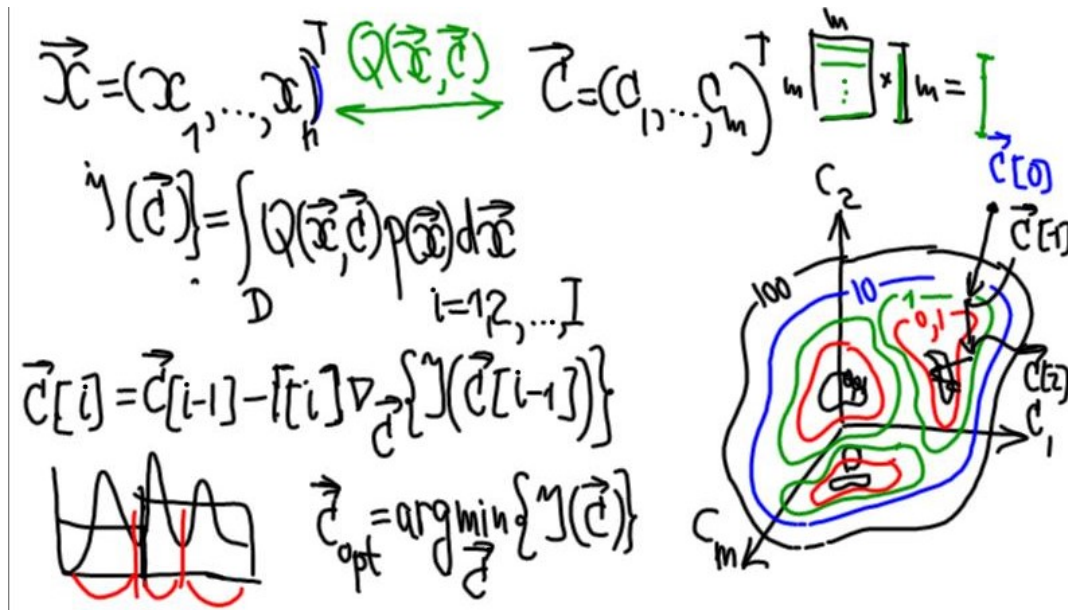 x⃗ = (x₁, ..., xₙ)ᵀ Q(x⃗, c⃗) c⃗ = (c₁, ..., cₘ)ᵀ m m × m =
J(c⃗)} = ∫ Q(x⃗, c⃗) p(x⃗) dx⃗
D i = 1,2, ..., I
c⃗[i] = c⃗[i-1] - Γ[i] ∇c⃗ {J(c⃗[i-1])}
c⃗opt = arg min c⃗ {J(c⃗)}
c⃗[0]
C₂ c⃗[1]
100 10 1 0,1
c⃗[2]
C₁
0
Cₘ